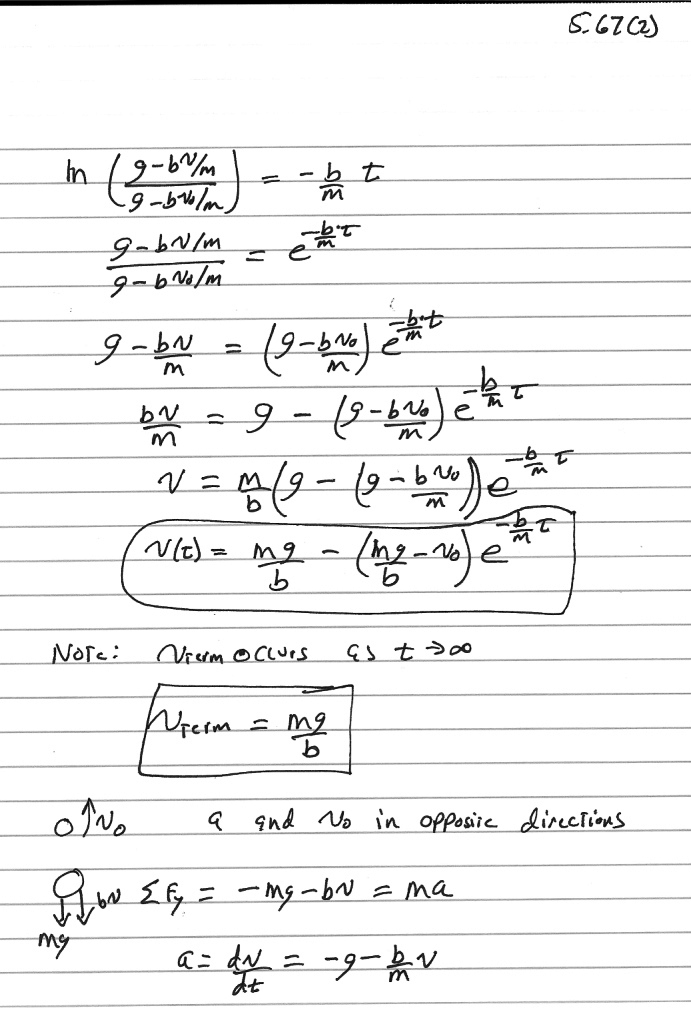 5.67(2)
ln ((g-bv/m)/(g-bv₀/m)) = -b/m t
(g-bv/m)/(g-bv₀/m) = e^(-b/m·t)
g - bv/m = (g-bv₀/m) e^(-b/m·t)
bv/m = g - (g-bv₀/m) e^(-b/m t)
v = m/b (g - (g-bv₀/m)) e^(-b/m t)
v(t) = mg/b - (mg/b - v₀) e^(-b/m t)
Note: vTerm occurs as t → ∞
vTerm = mg/b
v₀ a and v₀ in opposite directions
bv ΣFy = -mg-bv = ma
mg
a = dv/dt = -g - b/m v